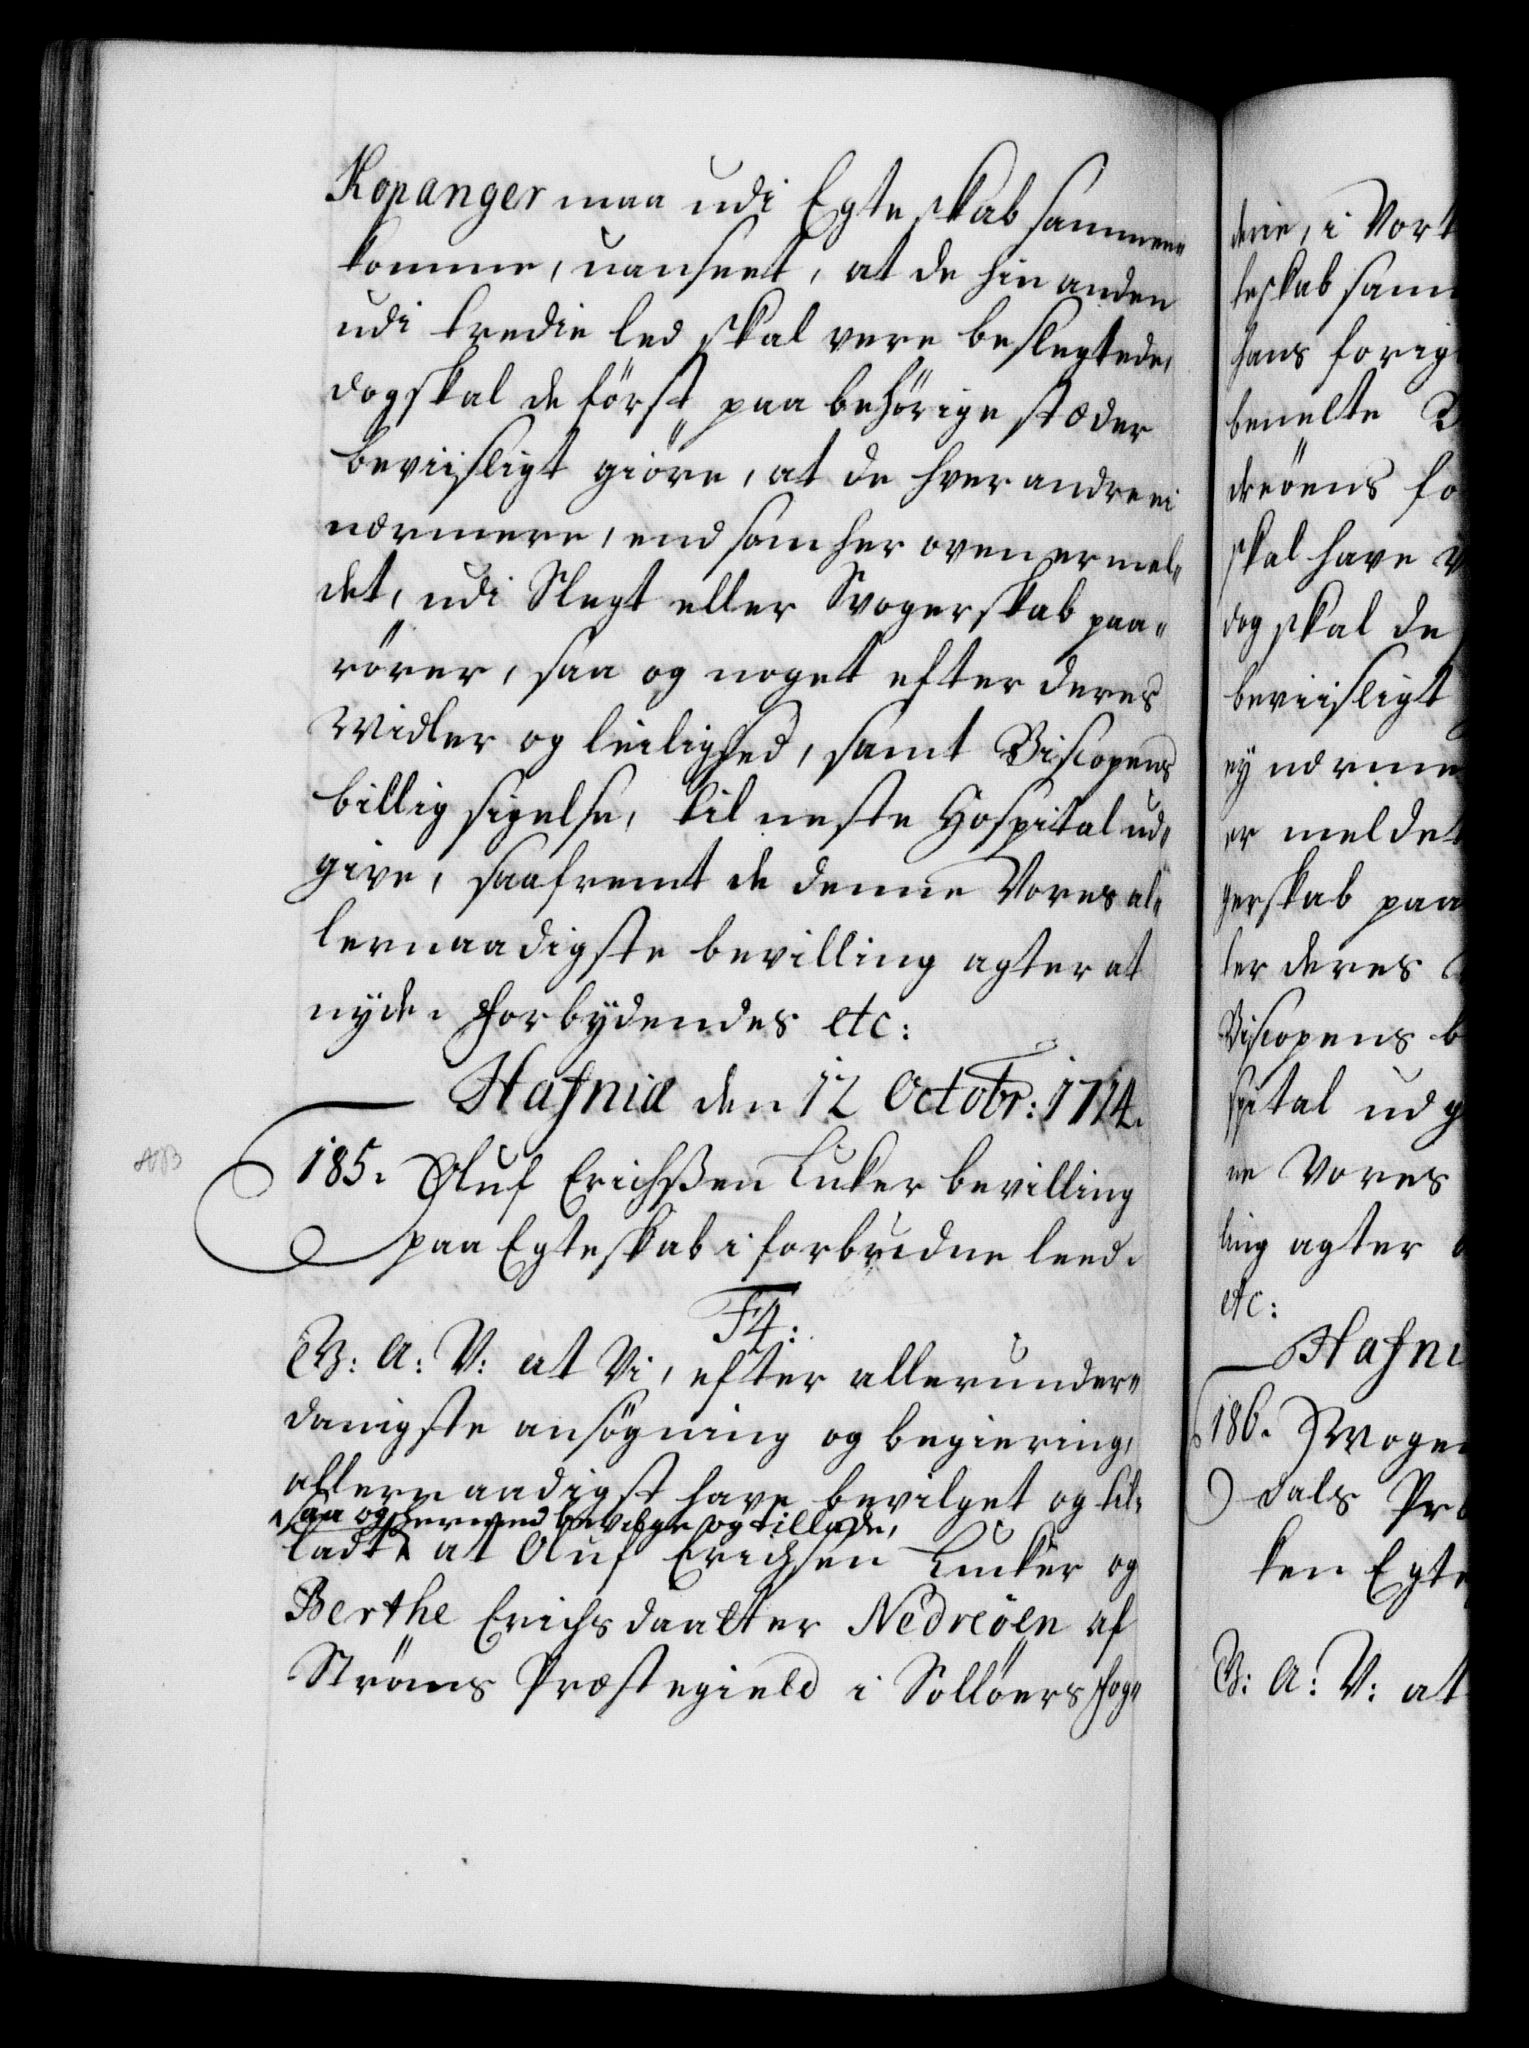 Kopanger maa udi Egteskab sammen„
komme, uanseet, at de hin anden
udi tredie led skal vere beslegtede,
dog skal de först paa behörige stæder
beviisligt giöre, at de hver andre ei
nærmere, end som her oven er mel„
det, udi Slegt eller Svogerskab paa„
rörer, saa og noget efter deres
Midler og leilighed, samt Biscopens
billig sigelse, til neste Hospital ud„
give, saafremt de denne Vores al„
lernaadigste bevilling agter at
nyde. Forbydendes etc:
Hafniæ den 12 Octobr: 1714.
185. Oluf Erichßen Luker bevilling
paa Egteskab i forbudne leed.
F4:
G: A: V: at Vi, efter allerunder„
danigste ansögning og begiering,
allernaadigst have bevilget og til„
saa og hermed bevilge og tillade,
ladt at Oluf Erichsen Luker og
Berthe Erichsdaatter Nedreöen af
Ströms Præstegield i Sollöers fog„
derie, i Vort
teskab sam
hans forig
benelte
dreöens fo
skal have
dog skal de
beviisligt
ey nærme
er meldet
gerskab paa
ter deres
Biscopens b
spital udg
ne Vores
ling agter
etc:
Hafni
186.
dals Præ
ken Egte
G: A: V: at